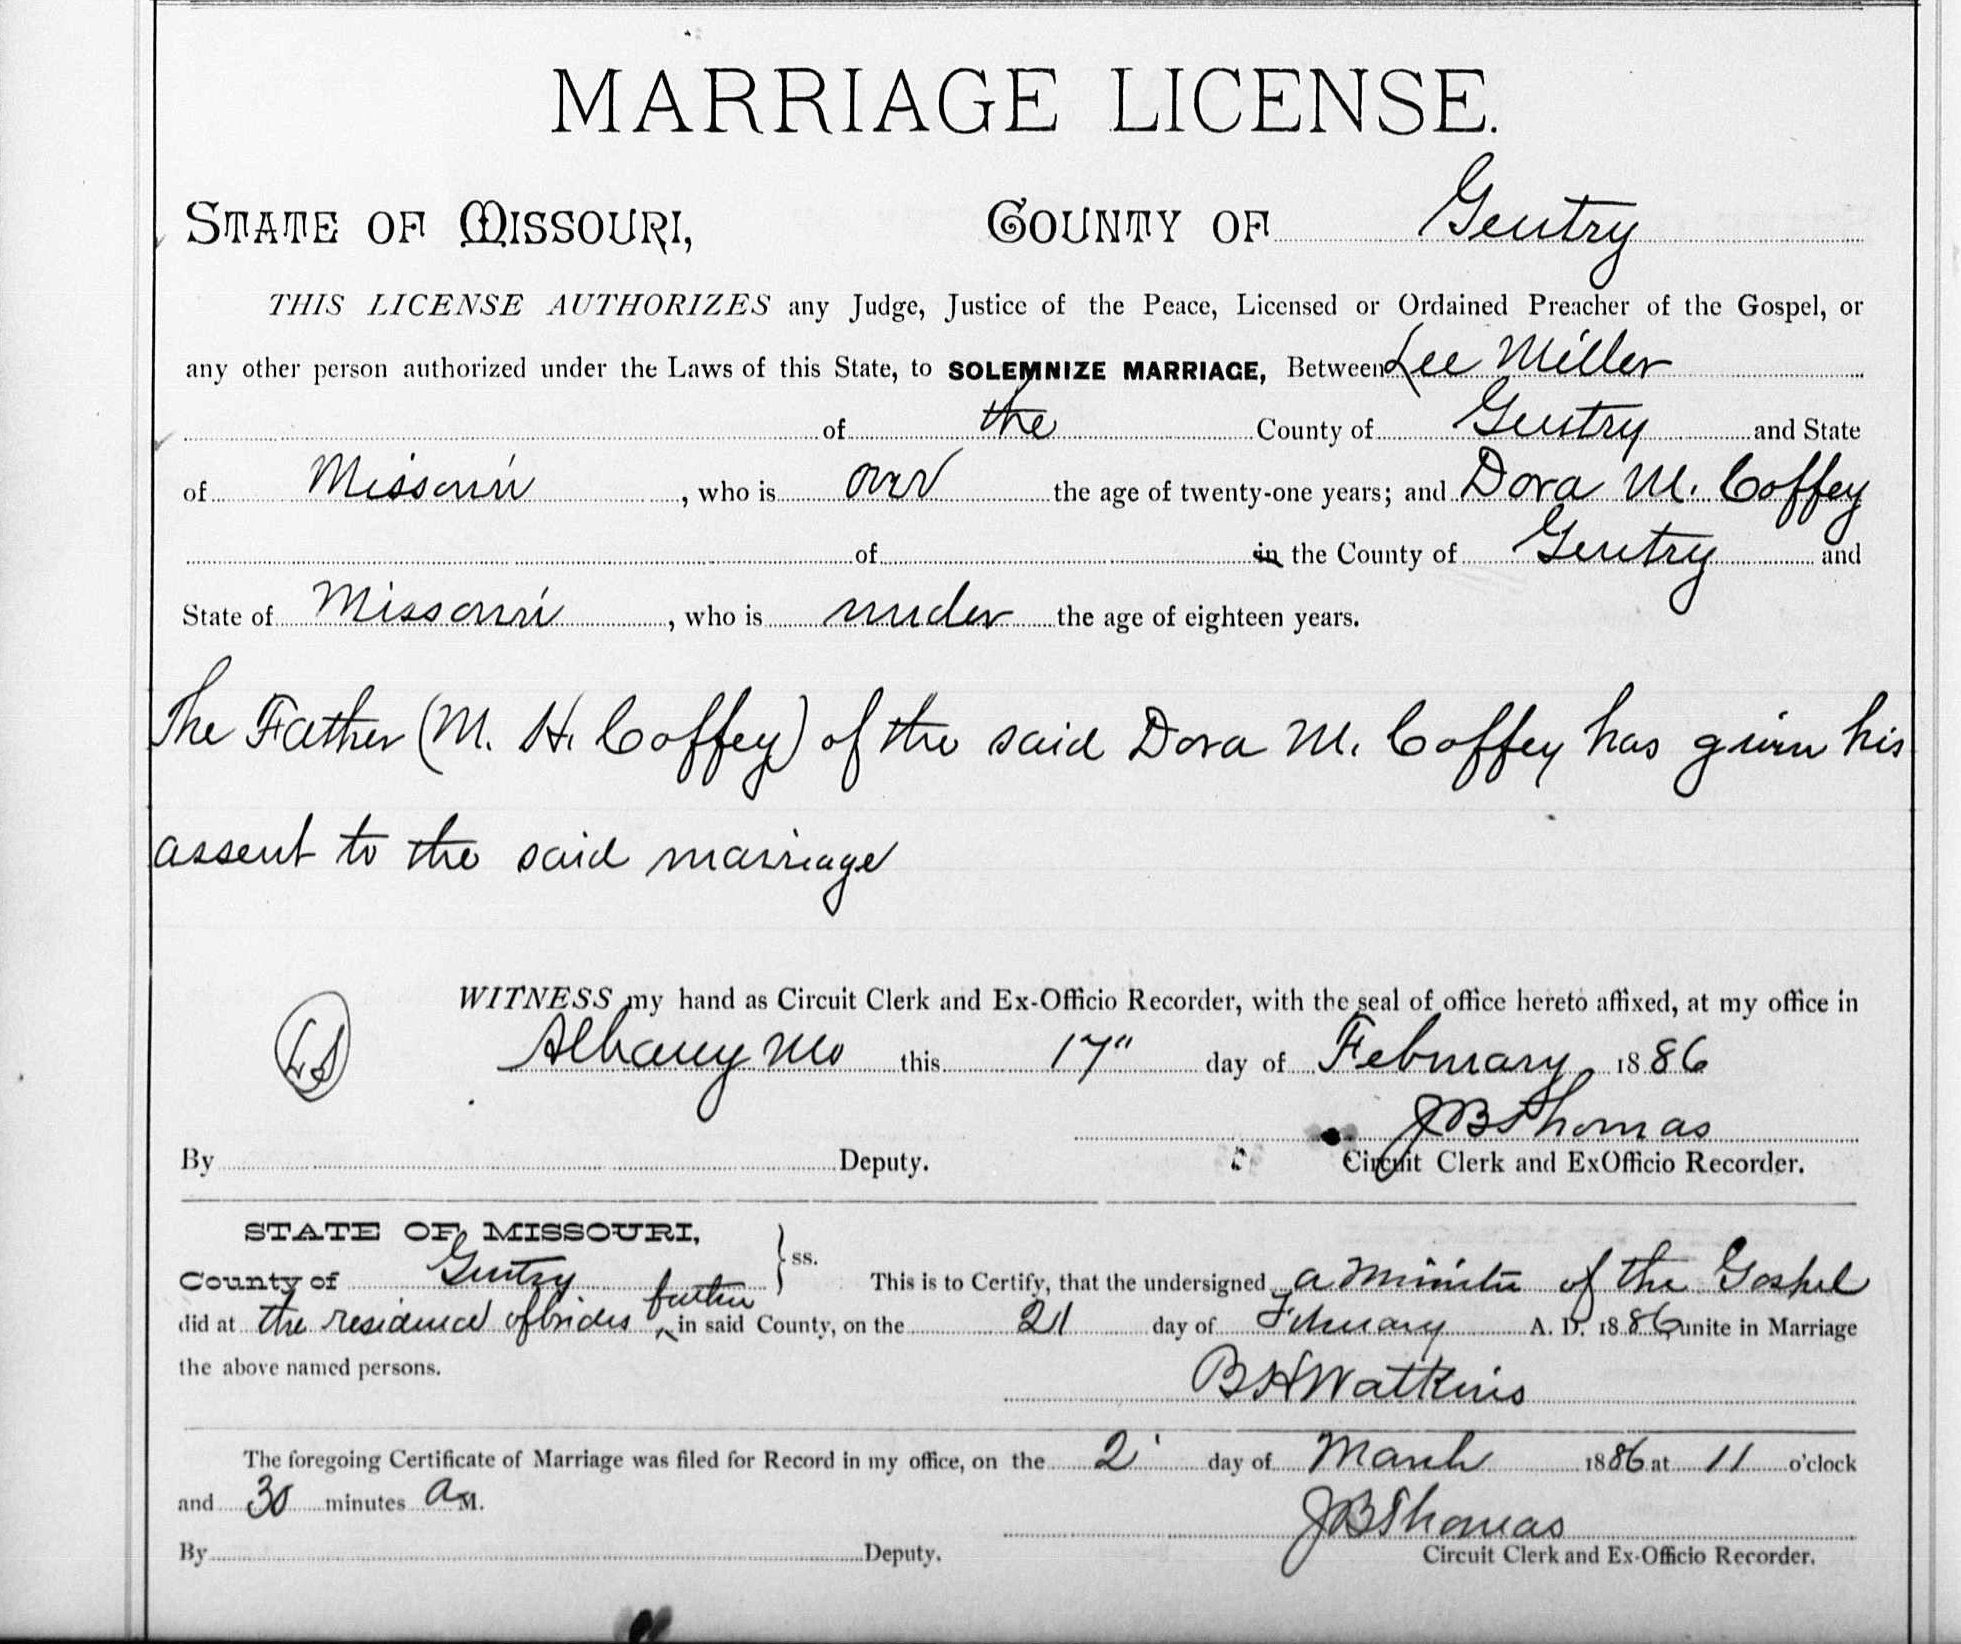 MARRIAGE LICENSE.
STATE OF MISSOURI, COUNTY OF Gentry
THIS LICENSE AUTHORIZES any Judge, Justice of the Peace, Licensed or Ordained Preacher of the Gospel, or
any other person authorized under the Laws of this State, to SOLEMNIZE MARRIAGE, Between Lee Miller
of the County of Gentry and State
of Missouri, who is over the age of twenty-one years; and Dora M. Coffey
of in the County of Gentry and
State of Missouri, who is under the age of eighteen years.
The Father (M. H. Coffey) of the said Dora M. Coffey has given his
assent to the said marriage
WITNESS my hand as Circuit Clerk and Ex-Officio Recorder, with the seal of office hereto affixed, at my office in
LS Albany Mo this 17" day of February 1886
J B Thomas
By Deputy. Circuit Clerk and ExOfficio Recorder.
STATE OF MISSOURI,
County of Gentry } ss. This is to Certify, that the undersigned a Minister of the Gospel
did at the residence of brides father in said County, on the 21 day of February A. D. 1886, unite in Marriage
the above named persons.
B H Watkins
The foregoing Certificate of Marriage was filed for Record in my office, on the 2' day of March 1886 at 11 o'clock
and 30 minutes A M.
J B Thomas
By Deputy. Circuit Clerk and Ex-Officio Recorder.